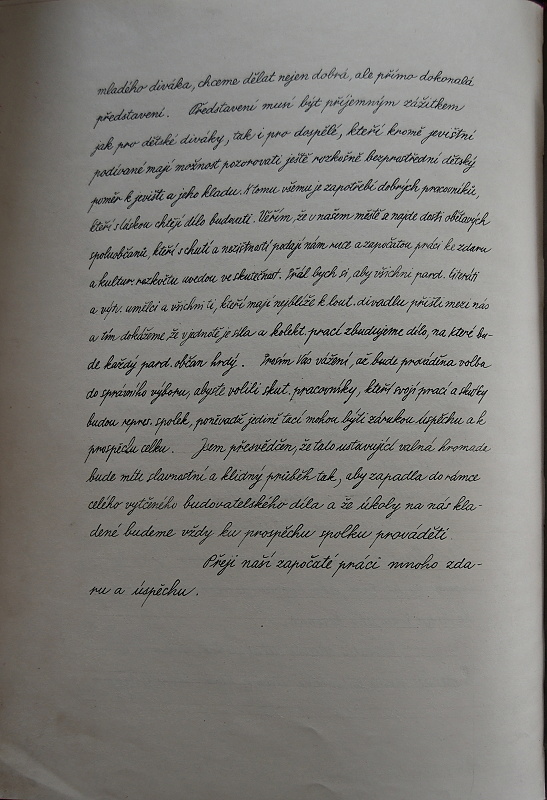 mladého diváka, chceme dělat nejen dobrá, ale přímo dokonalá
představení. Představení musí být příjemným zážitkem
jak pro dětské diváky, tak i pro dospělé, kteří kromě jevištní
podívané mají možnost pozorovati ještě rozkošně bezprostřední dětský
poměr k jevišti a jeho kladu. K tomu všemu je zapotřebí dobrých pracovníků,
kteří s láskou chtějí dílo budovati. Věřím, že v našem městě a najde dosti obětavých
spoluobčanů, kteří s chutí a nezištností podají nám ruce a započatou práci ke zdaru
a kultur. rozkvětu uvedou ve skutečnost. Přál bych si, aby všichni pard. literáti
a výtv. umělci a všichni ti, kteří mají nejblíže k lout. divadlu přišli mezi nás
a tím dokážeme, že v jednotě je síla a kolekt. prací zbudujeme dílo, na které bu-
de každý pard. občan hrdý. Prosím Vás vážení, až bude prováděna volba
do správního výboru, abyste volili skut. pracovníky, kteří svojí prací a skutky
budou repres. spolek, poněvadž jedině tací mohou býti zárukou úspěchu a k
prospěchu celku. Jsem přesvědčen, že tato ustavující valná hromada
bude míti slavnostní a klidný průběh tak, aby zapadla do rámce
celého vytčeného budovatelského díla a že úkoly na nás kla-
dené budeme vždy ku prospěchu spolku prováděti.
Přeji naší započaté práci mnoho zda-
ru a úspěchu.